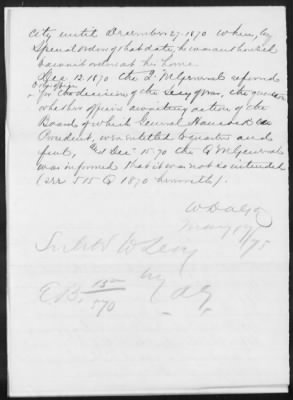 City until December 27, 1870 when, by
Special orders of that date, he was authorized
to await orders at his home.
Dec 12 1870 the Q. M. General referred
for the decision of the Secy of War, the question
whether officers awaiting action of the
Board of which General Hancock was
President, were entitled to quarters and
fuel, Dec 15 70 the Q M General
was informed that it was not so intended
(see 515 Q 1870 herewith).
May 19
/75
by
15
570